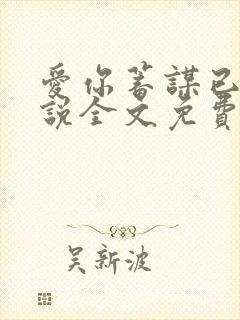 愛你蓄謀已
說全文免費
吴新波